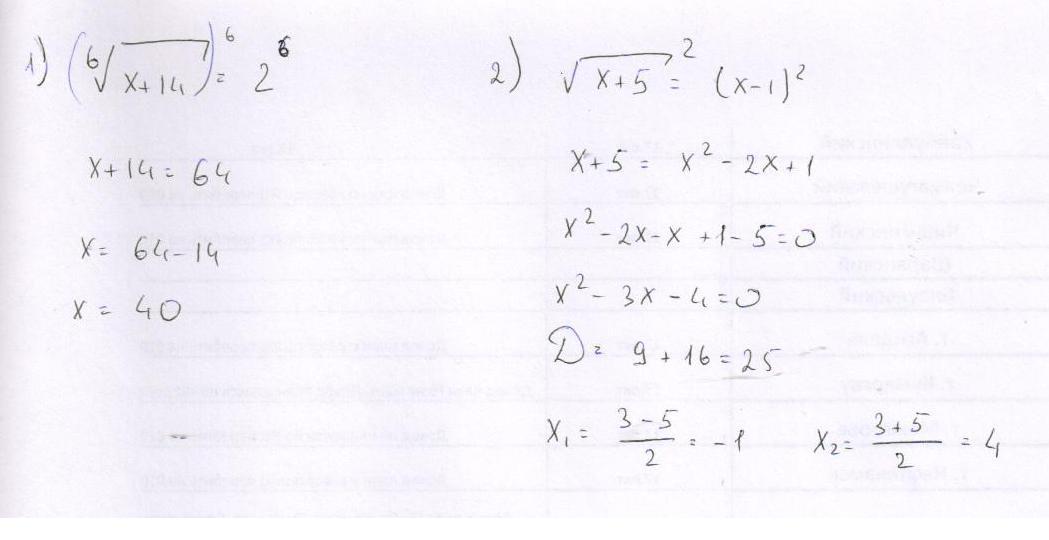 1) (⁶√(x+14))⁶ = 2⁶
x+14 = 64
x = 64-14
x = 40
2) √(x+5)² = (x-1)²
x+5 = x² - 2x + 1
x² - 2x - x + 1 - 5 = 0
x² - 3x - 4 = 0
D = 9 + 16 = 25
x₁ = (3-5)/2 = -1    x₂ = (3+5)/2 = 4